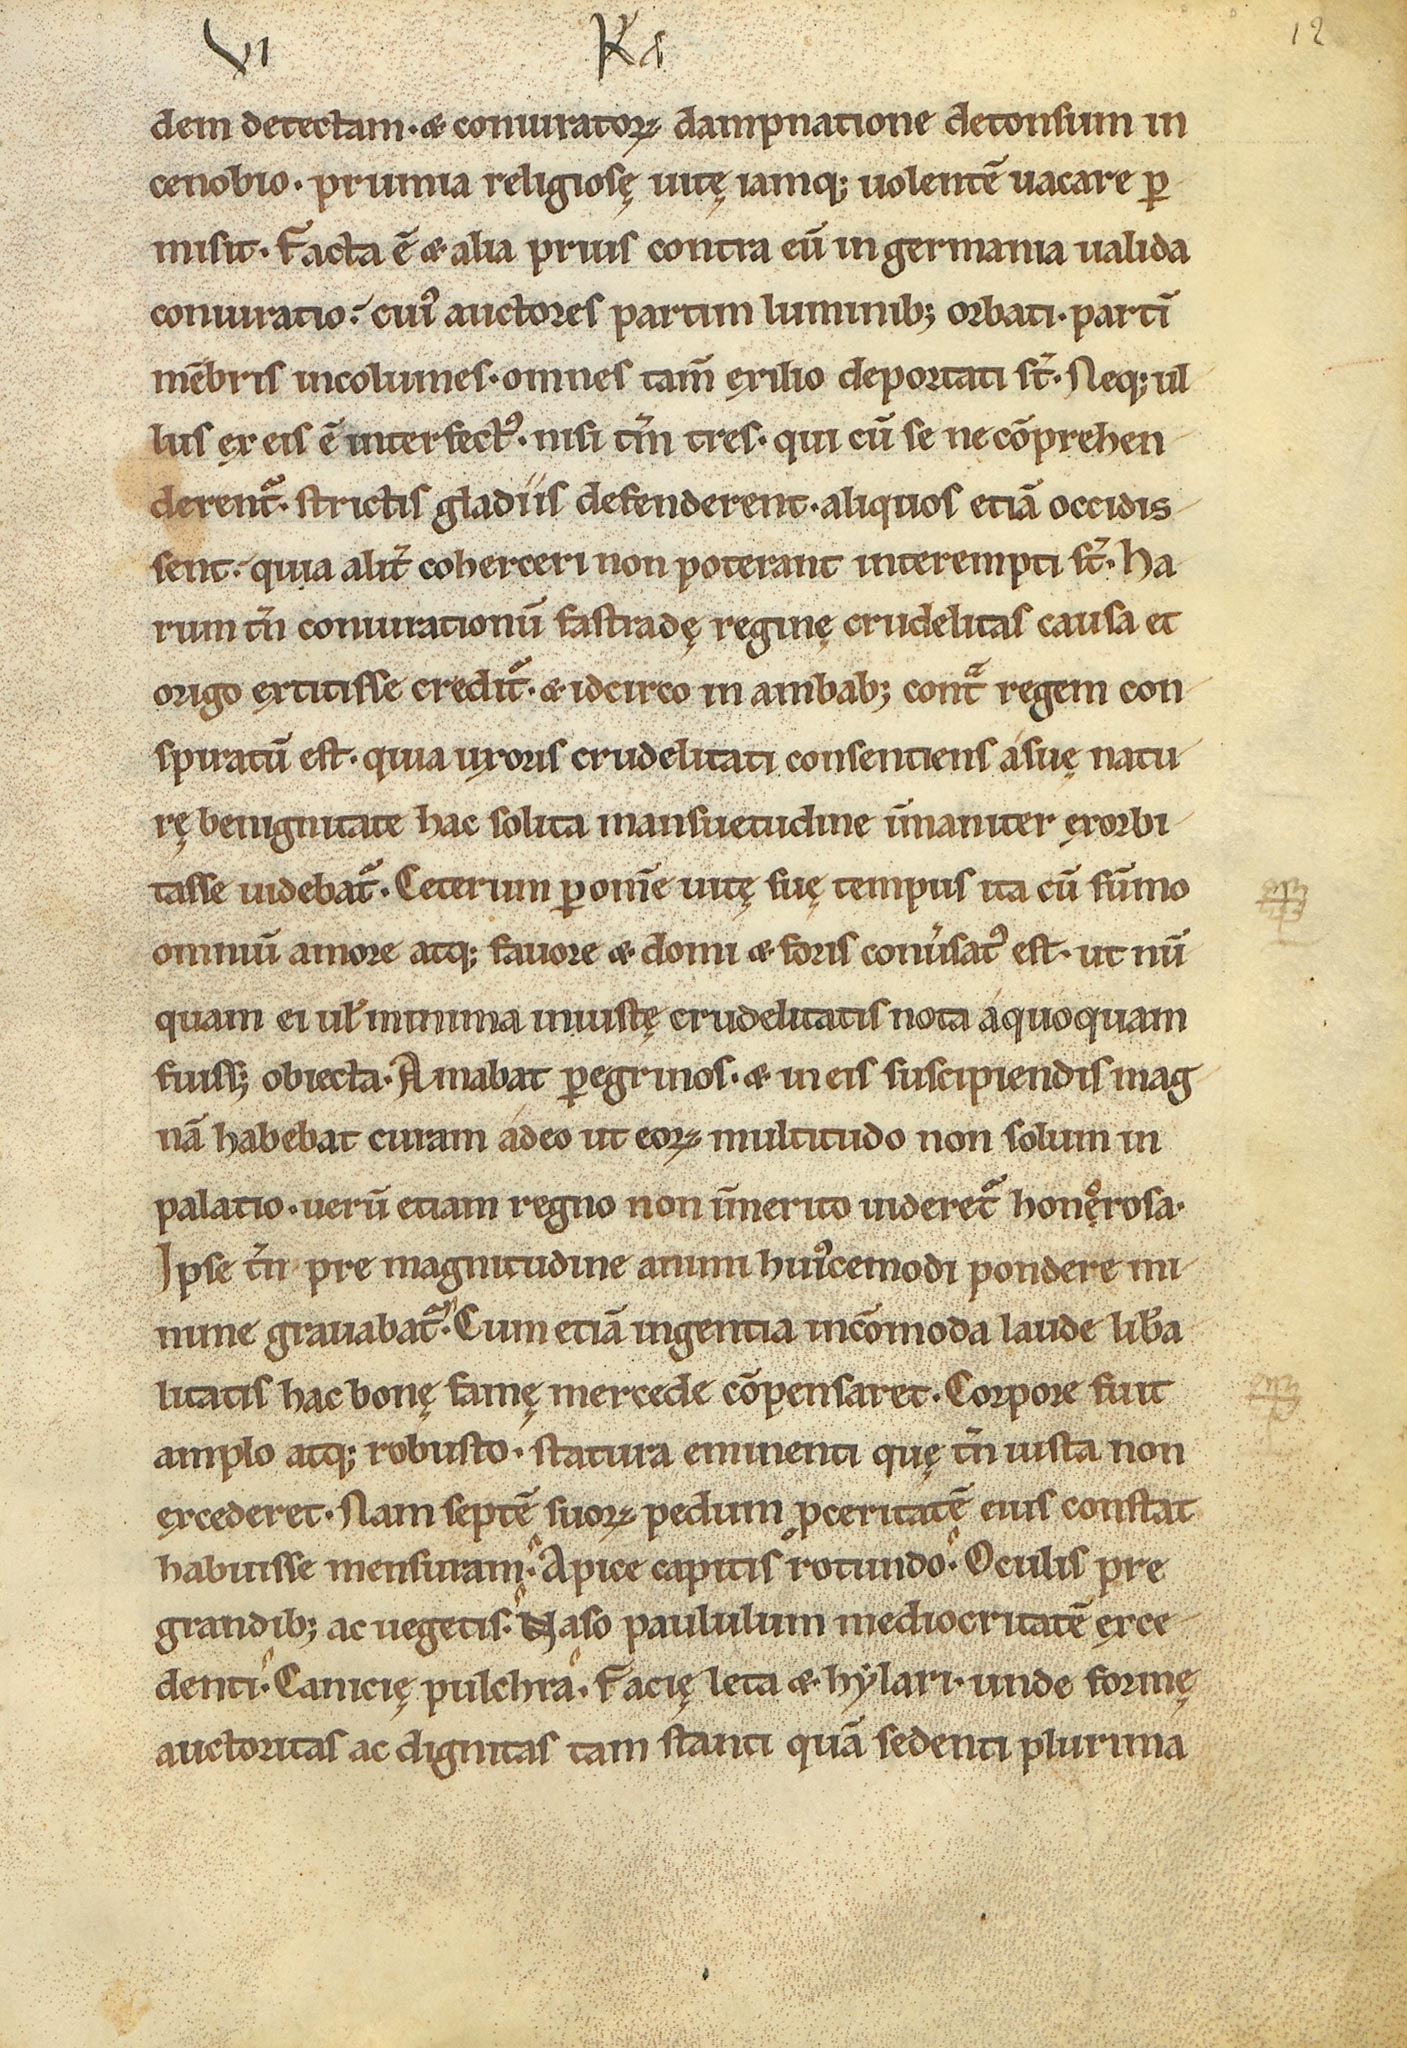 VI Ka 12
dem detectam· & coniuratoꝝ dampnatione detonsum in
cenobio· prumia religiosę uitę iamq; uolentē uacare ꝑ
misit· Facta ē & alia prius contra eū in germania ualida
coniuratio· cuiꝰ auctores partim luminib; orbati· partī
mēbris incolumes· omnes tam̄ exilio deportati st̄· Neq; ul
lus ex eis ē interfectꝰ· nisi tm̄ tres· qui cū se ne cōprehen
derent᷑· strictis gladiis defenderent· aliquos etiā occidis
sent· quia alit̄ coherceri non poterant interempti st̄· Ha
rum tn̄ coniurationū fastradę reginę crudelitas causa et
origo extitisse credit᷑· & idcirco in ambab; contᷓ regem con
spiratū est· quia uxoris crudelitati consentiens a suę natu
rę benignitate hac solita mansuetudine īmaniter exorbi
tasse uidebat᷑· Ceterum ꝑ om̄e uitę suę tempus ita cū sūmo
omniū amore atq; fauore & domi & foris conūsatꝰ est· ut nū
quam ei ul̄ minima iniustę crudelitatis nota a quoquam
fuiss; obiecta· Amabat ꝑegrinos· & in eis suscipiendis mag
nā habebat curam adeo ut eoꝝ multitudo non solum in
palatio· uerū etiam regno non īmerito uideret᷑ honęrosa·
Ipse tn̄ pre magnitudine animi huiꝰcemodi pondere mi
nime grauabat᷑· Cum etiā ingentia incōmoda laude lib̄a
litatis hac bonę famę mercede cōpensaret· Corpore fuit
amplo atq; robusto· statura eminenti quę tn̄ iusta non
excederet· Nam septē suoꝝ pedum ꝓceritatē eius constat
habuisse mensuram· Apice capitis rotundo· Oculis pre
grandib; ac uegetis· Naso paululum mediocritatē exce
denti· Canicię pulchra· Facię leta & hẏlari· unde formę
auctoritas ac dignitas tam stanti quā sedenti plurima